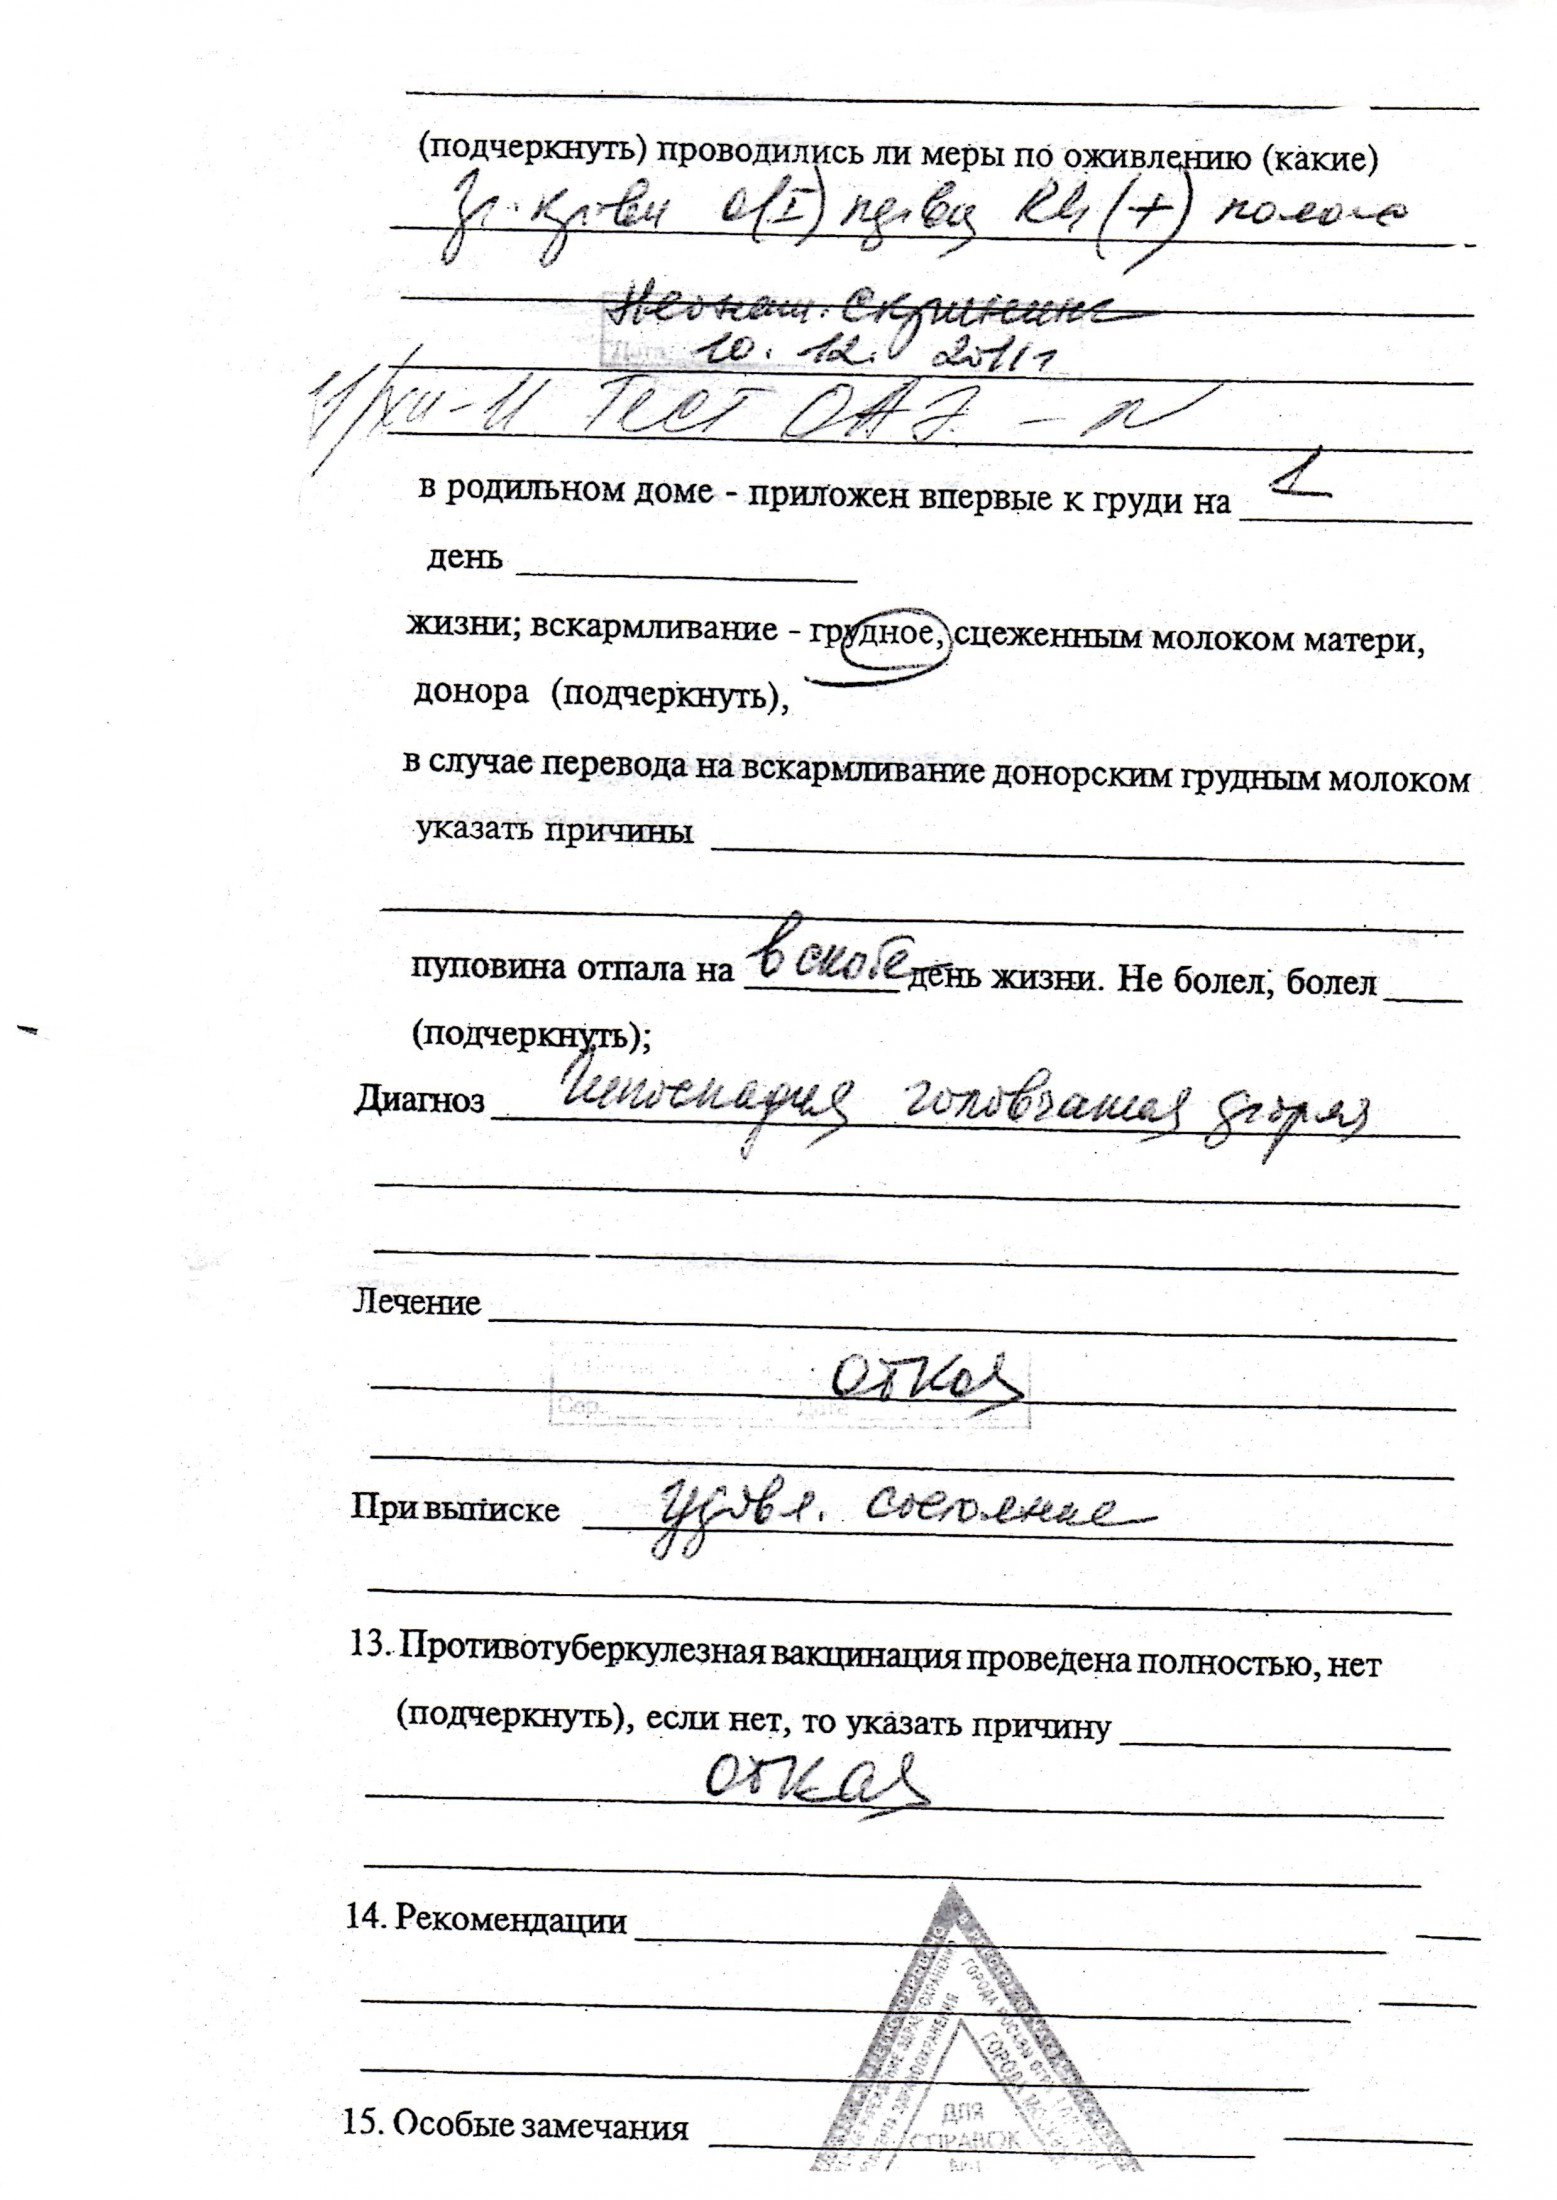 (подчеркнуть) проводились ли меры по оживлению (какие)
Гр. крови O(I) первая Rh (+) полож
Неонат. скрининг
Дата
10. 12. 2011г
11/XII-11 Тест ОАЭ - N
в родильном доме - приложен впервые к груди на 1
день
жизни; вскармливание - грудное, сцеженным молоком матери,
донора (подчеркнуть),
в случае перевода на вскармливание донорским грудным молоком
указать причины
пуповина отпала на в скобе день жизни. Не болел, болел
(подчеркнуть);
Диагноз Гипоспадия головчатая форма
Лечение
Сер. Дата
отказ
При выписке удовл. состояние
13. Противотуберкулезная вакцинация проведена полностью, нет
(подчеркнуть), если нет, то указать причину
отказ
14. Рекомендации
ГОРОДА МОСКВЫ
ЗДРАВООХРАНЕНИЯ
ДЛЯ
СПРАВОК
15. Особые замечания